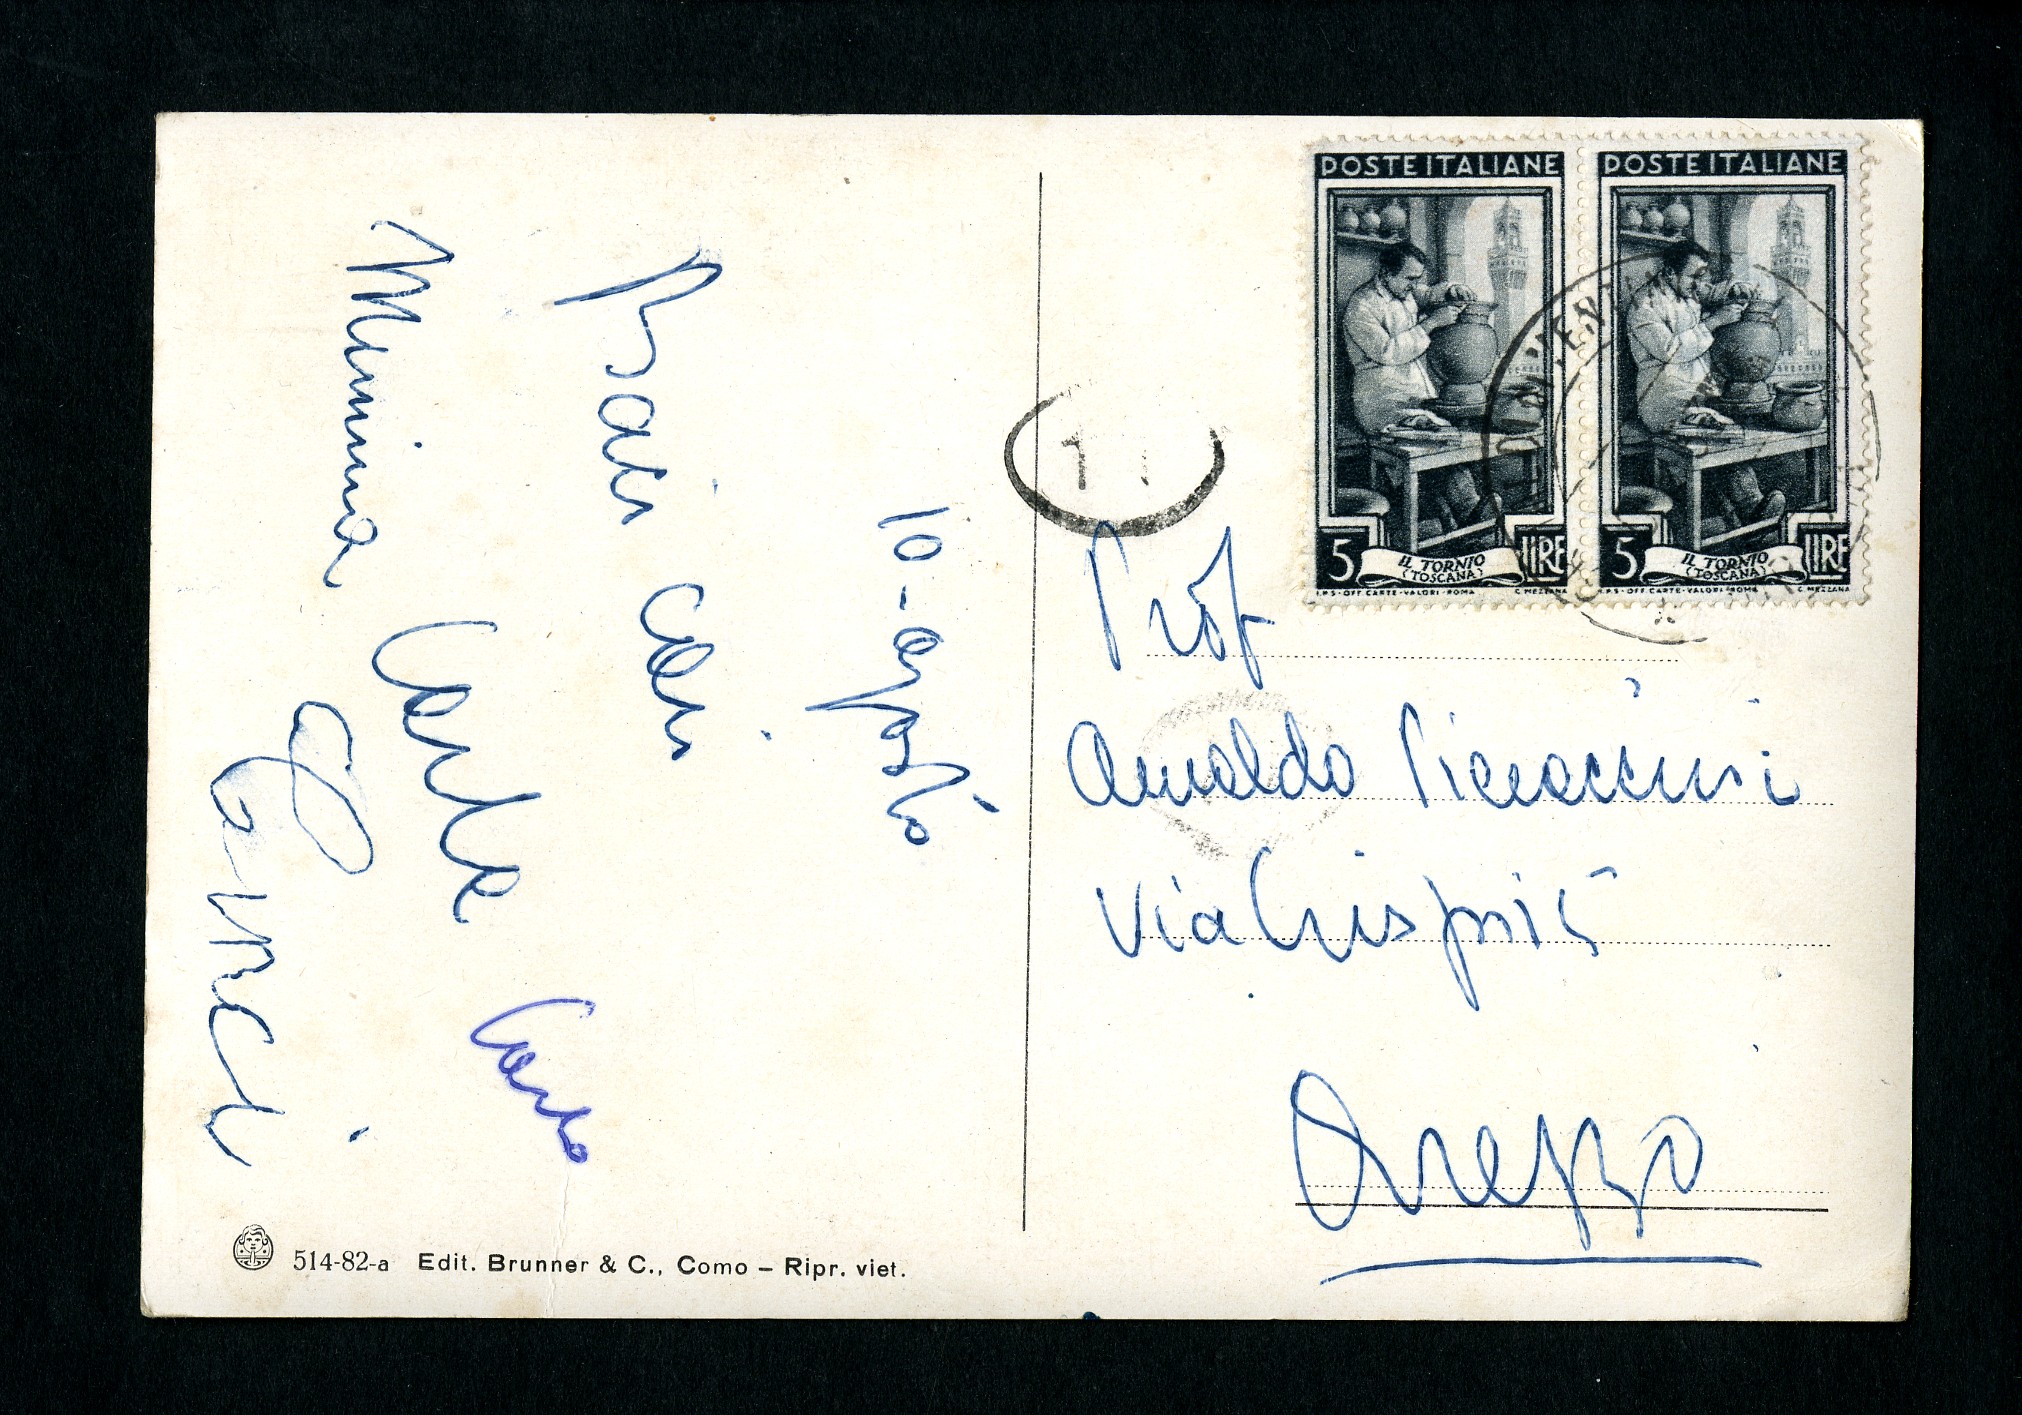 10-agosto
Baci cari
Mimma Carla Carlo
POSTE ITALIANE
5 IL TORNIO (TOSCANA) LIRE
I.P.S - OFF. CARTE-VALORI - ROMA C. MEZZANA
POSTE ITALIANE
5 IL TORNIO (TOSCANA) LIRE
I.P.S - OFF. CARTE-VALORI - ROMA C. MEZZANA
Prof
Arnaldo
Via Crispi 5
Arezzo
514-82-a Edit. Brunner & C., Como – Ripr. viet.